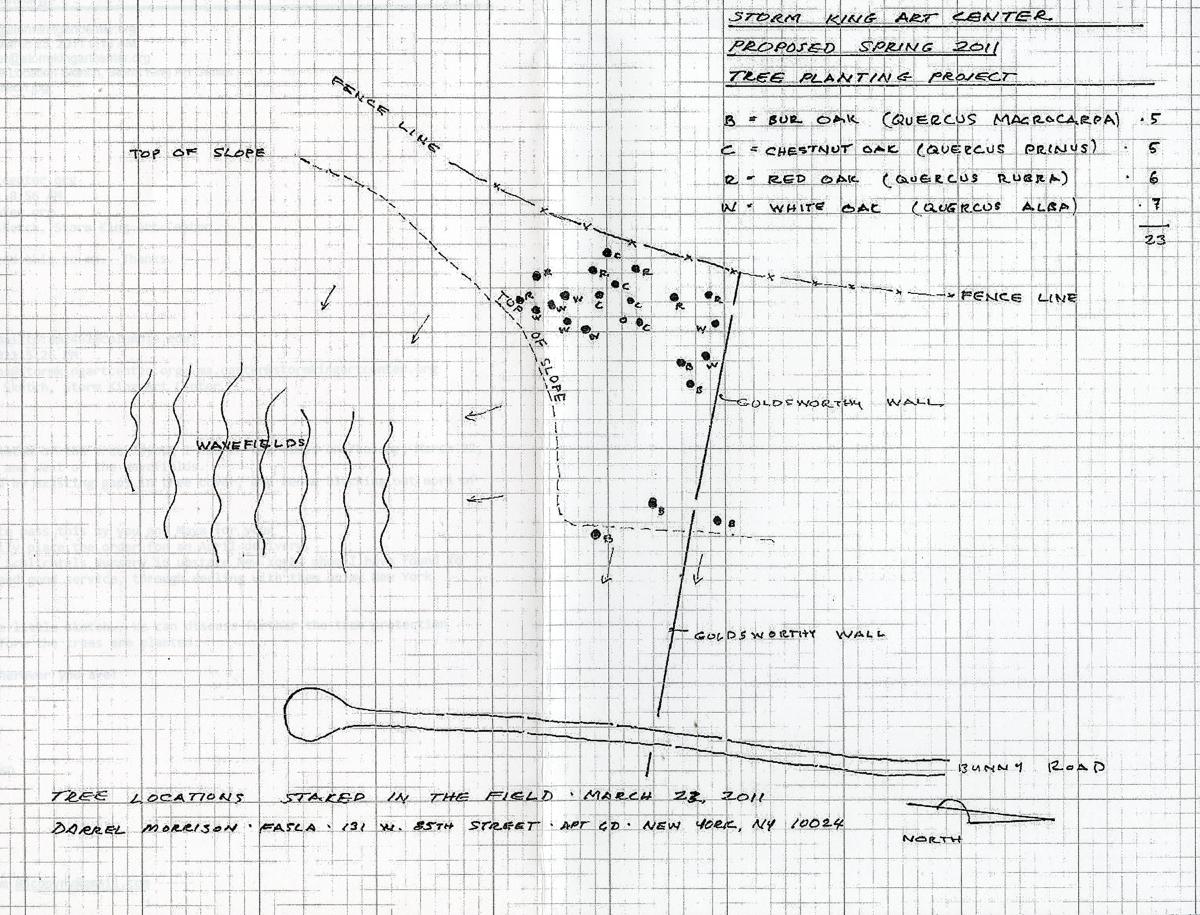 STORM KING ART CENTER
PROPOSED SPRING 2011
TREE PLANTING PROJECT
B = BUR OAK (QUERCUS MACROCARPA) · 5
C = CHESTNUT OAK (QUERCUS PRINUS) · 5
R = RED OAK (QUERCUS RUBRA) · 6
W = WHITE OAK (QUERCUS ALBA) · 7
23
FENCE LINE
TOP OF SLOPE
C
R
R
R
C
R
W
C
C
R
R
W
W
W
W
C
W
TOP OF SLOPE
B
W
B
FENCE LINE
GOLDSWORTHY WALL
WAVEFIELDS
B
B
B
GOLDSWORTHY WALL
BUNNY ROAD
TREE LOCATIONS STAKED IN THE FIELD · MARCH 23, 2011
DARREL MORRISON · FASLA · 131 W. 85TH STREET · APT 6D · NEW YORK, NY 10024
NORTH